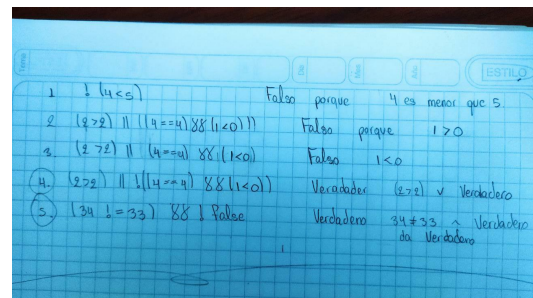 Tema Día Mes Año ESTILO
1 ! (4<5) Falso porque 4 es menor que 5
2 (2>2) || ((4==4) && (1<0))) Falso porque 1>0
3. (2>2) || (4==4) && (1<0) Falso 1<0
4. (2>2) || !((4==4) && (1<0)) Veradader (2>2) v Verdadero
5. (34 != 33) && ! false Verdadero 34≠33 ^ Verdadero
da Verdadero